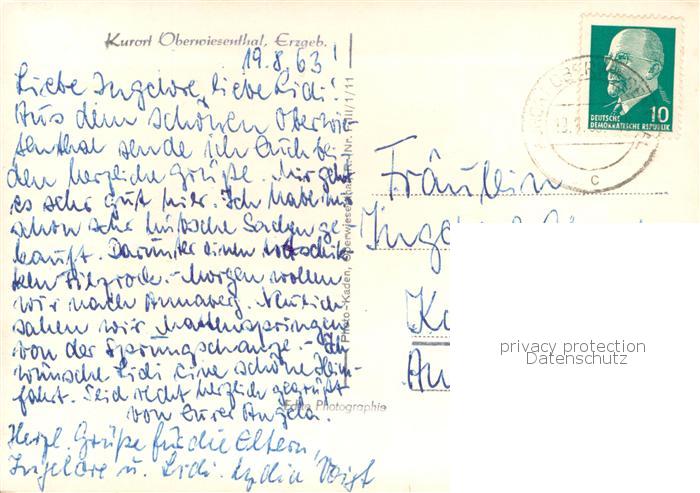 Kurort Oberwiesenthal, Erzgeb.
19.8.63!
Liebe Ingelore, liebe Lidi!
Aus dem schönen Oberwie-
senthal sende ich Euch bei-
den herzliche Grüße. Mir geht
es sehr gut hier. Ich habe mir
schon sehr hübsche Sachen ge-
kauft. Darunter einen totschik-
ken Filzrock.- Morgen wollen
wir nach Annaberg. Neulich
sahen wir Mattenspringen
von der Sprungschanze.- Ich
wünsche Lidi eine schöne Heim-
fahrt. Seid recht herzlich gegrüßt
von Eurer Angela.
Herzl. Grüße für die Eltern,
Ingelore u. Lidi. Lydia Voigt
Echte Photographie
Photo-Kaden, Oberwiesenthal
III/1/11
10
DEUTSCHE
DEMOKRATISCHE REPUBLIK
c
Fräulein
privacy protection
Datenschutz